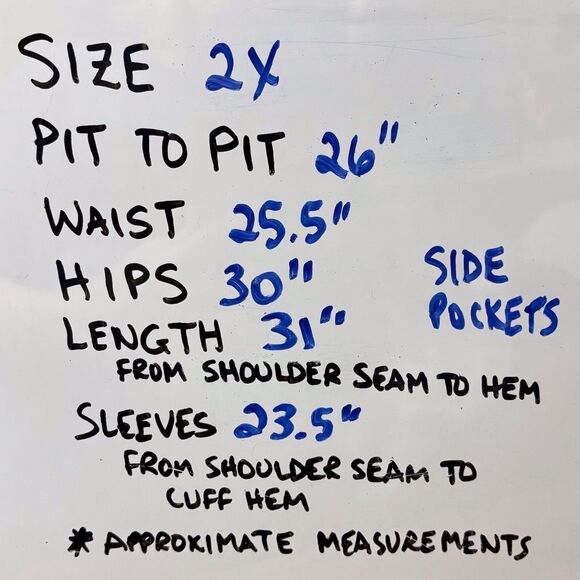 SIZE 2X
PIT TO PIT 26"
WAIST 25.5"
HIPS 30"
LENGTH 31"
FROM SHOULDER SEAM TO HEM
SIDE
POCKETS
SLEEVES 23.5"
FROM SHOULDER SEAM TO
CUFF HEM
* APPROXIMATE MEASUREMENTS